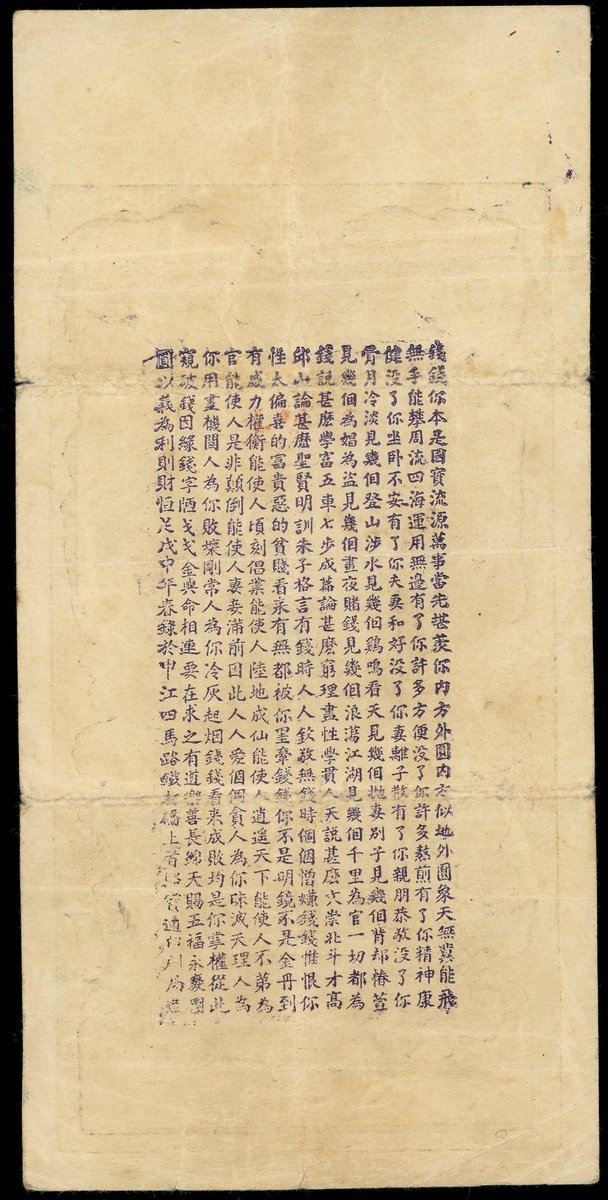 錢錢你本是國寶流源萬事當先堪羨你内方外圓内方似地外圓象天無翼能飛
無手能攀周流四海運用無邊有了你許多方便没了你許多熬煎有了你精神康
健没了你坐卧不安有了你夫妻和好没了你妻離子散有了你親朋恭敬没了你
骨月冷淡見幾個登山涉水見幾個鷄鳴看天見幾個抛妻别子見幾個背却椿萱
見幾個為娼為盗見幾個晝夜賭錢見幾個浪蕩江湖見幾個千里為官一切都為
錢説甚麽學富五車七步成篇論甚麽窮理盡性學貫人天説甚麽文崇北斗才高
邱山論甚麽聖賢明訓朱子格言有錢時人人欽敬無錢時個個憎嫌錢錢惟恨你
性太偏喜的富貴惡的貧賤看來有無都被你牽錢錢你不是明鏡不是金丹到
有威力權衡能使人頃刻倡業能使人陸地成仙能使人逍遥天下能使人不第為
官能使人是非顛倒能使人妻妾滿前因此人人愛個個貪人為你昧滅天理人為
你用盡機関人為你敗壞剛常人為你冷灰起烟錢錢看來成敗均是你掌權從此
窺破錢因緣錢字陋戈戈金與命相連要在求之有道樂善長綿天賜五福永慶團
圓以義為利則財恒足戊申年春錄於申江四馬路鐵大橋上首